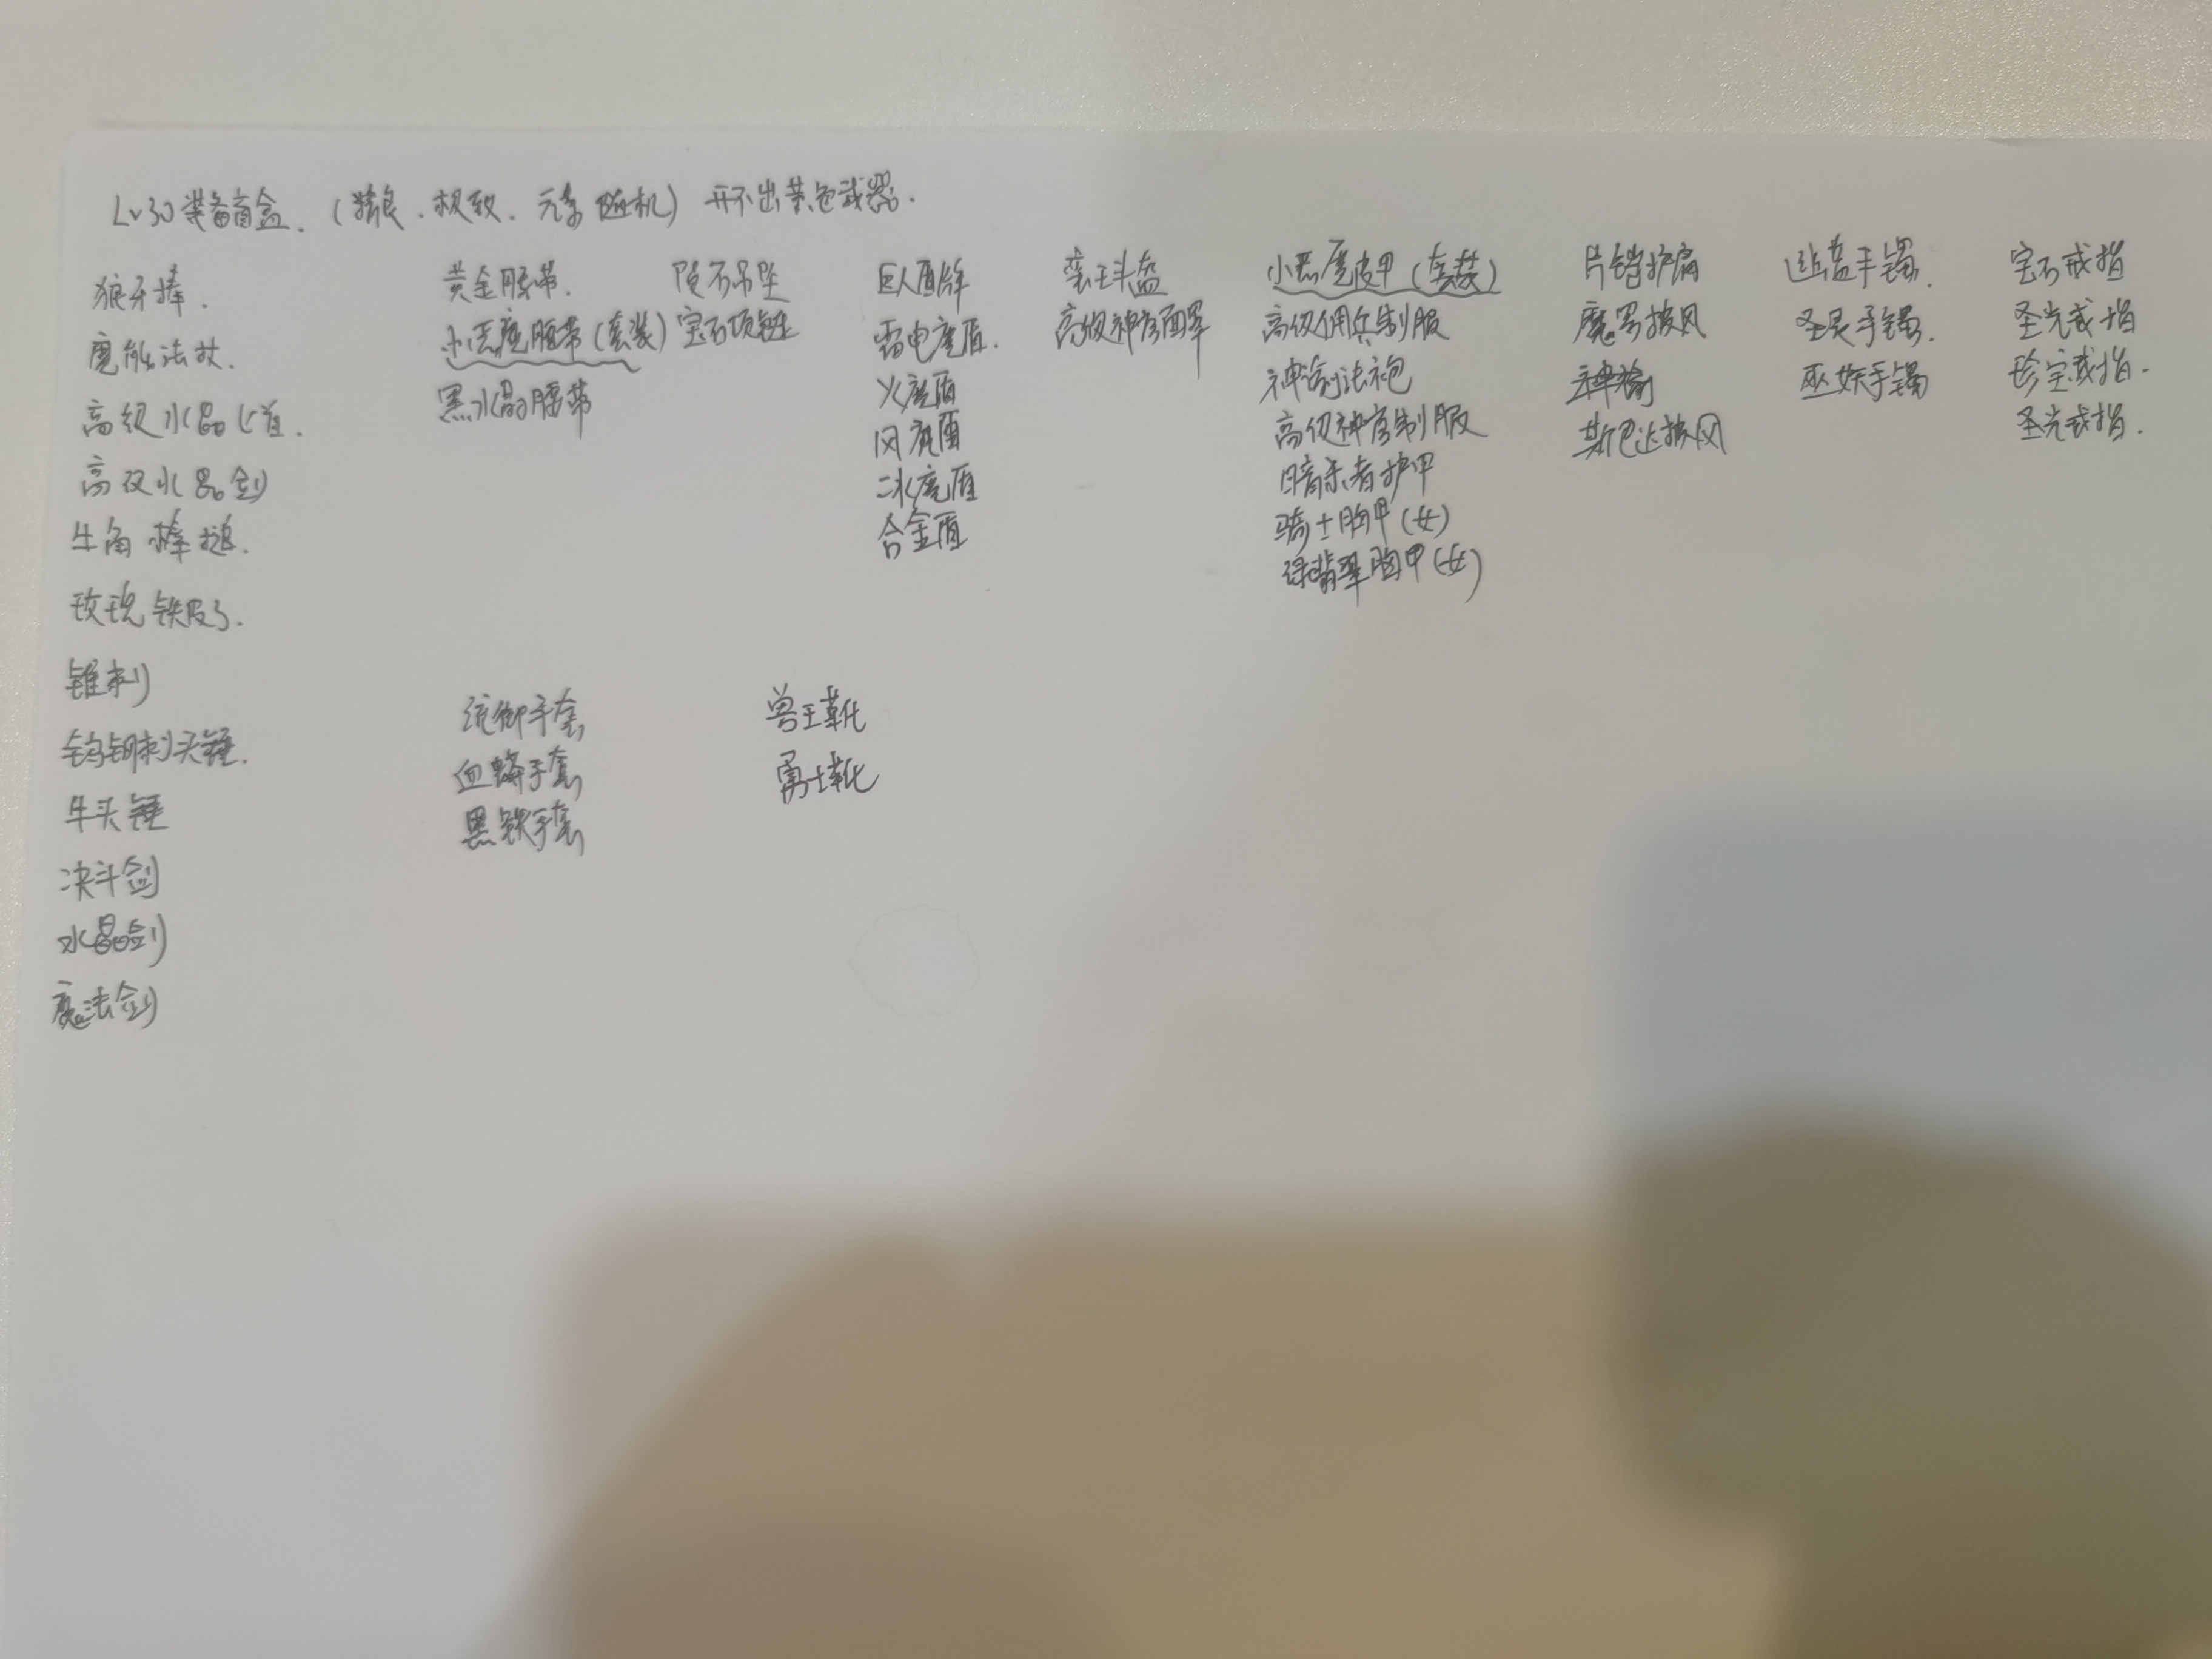 Lv30装备盲盒.（精良.极致.元素随机）开不出黄色武器.
狼牙棒.
魔能法杖.
高级水晶匕首.
高级水晶剑
牛角棒槌.
玫瑰铁
锥刺
钨钢刺头锤.
牛头锤
决斗剑
水晶剑
魔法剑
黄金腰带.
小恶魔腰带（套装）
黑水晶腰带
陨石吊坠
宝石项链
巨人盾牌
雷电魔盾.
火魔盾
风魔盾
冰魔盾
合金盾
蛮王头盔
高级神官面罩
小恶魔皮甲（套装）
高级佣兵制服
神谕法袍
高级神官制服
暗杀者护甲
骑士胸甲（女）
绿翡翠胸甲（女）
片铠护肩
魔罗披风
神谕
斯巴达披风
手镯.
圣灵手镯.
巫妖手镯
宝石戒指
圣光戒指
珍宝戒指.
圣光戒指.
统御手套
血蟒手套
黑铁手套
兽王靴
勇士靴